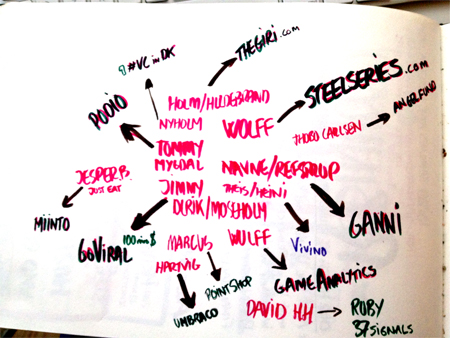 #VC in DK
THEGIRI.com
PODIO
HOLM/HILDEBRAND
STEELSERIES.com
NYHOLM
WOLFF
ANGELFUND
TOMMY
THOBO CARLSEN
MYGDAL
NAVNE/REFSTRUP
JESPER B.
JUST EAT
JIMMY
THEIS/HEINI
MIINTO
GANNI
GOVIRAL
100 mio $
MARCUS
WULFF
VIVINO
HARTVIG
GAMEANALYTICS
POINTSHOP
UMBRACO
DAVID HH → RUBY
37SIGNALS